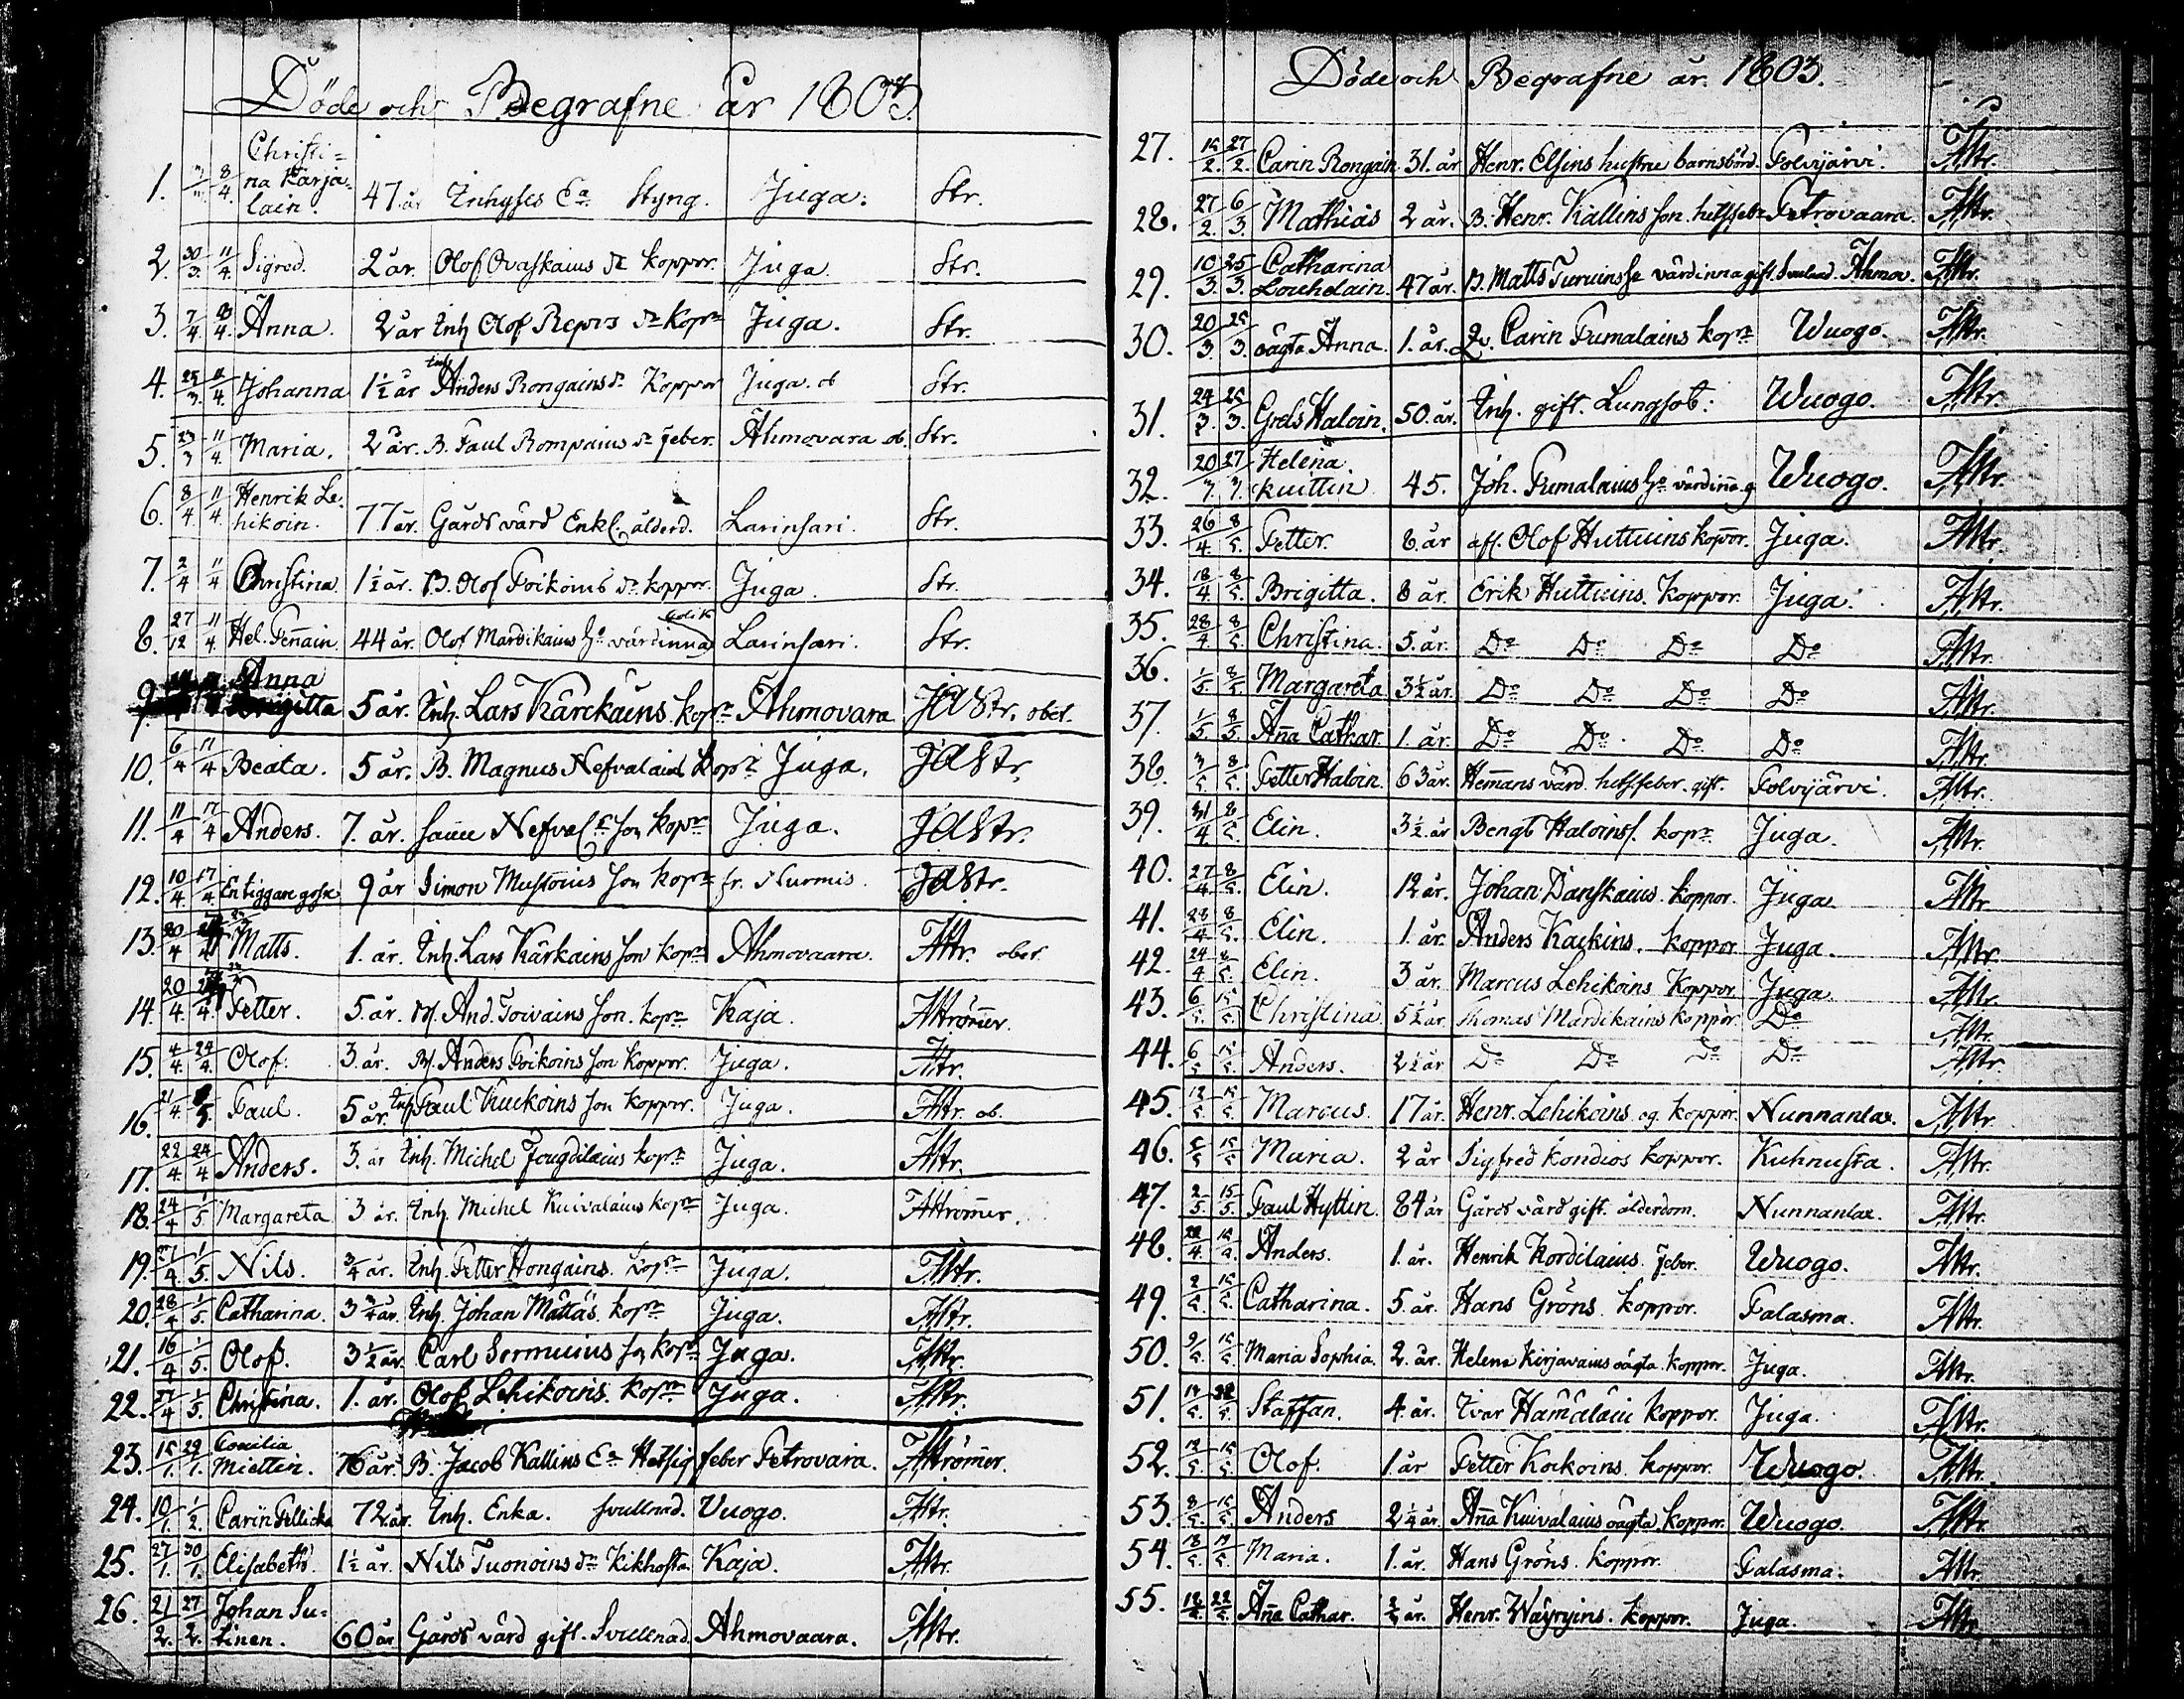 Döde och Begrafne år 1803.
1. 8/4. Christina Karjalain. 47 år Inhyses Ea Styng. Juga. Str.
2. 30/3. 11/4. Sigred. 2 år. Olof Ovaskains dr koppor. Juga. Str.
3. 7/4. Anna. 2 år Inh Olof Repos dr kopr Juga. Str.
4. 25/3. 11/4. Johanna 1½ år Inh Anders Rongains dr Koppor Juga. ob Str.
5. 23/3 11/4. Maria. 2 år. B. Paul Rompains dr feber. Ahmovara ob. Str.
6. 8/4 11/4. Henrik Lehikoin. 77 år. Gårds värd Enkl. ålderd. Larinsari. Str.
7. 2/4 11/4 Christina 1½ år. B. Olof Poikoins dr koppor. Juga. Str.
8. 27/12 11/4. Hel. Peñain 44 år. Olof Mardikains hu värdinna Colik Larinsari. Str.
9. Anna Brigitta 5 år. Inh. Lars Kärckäins kopr Ahmovara JAStr. obet.
10. 6/4 17/4 Beata. 5 år. B. Magnus Nefvalains kopr Juga. JAStr.
11. 11/4 17/4 Anders. 7. år. Nefval son kopr Juga. JAStr.
12. 10/4 17/4 En tiggare gosse 9 år Simon Mustoins son kopr fr. Nurmis. JAStr.
13. 20/4 Matts. 1. år. Inh. Lars Kärkains son kopr Ahmovaara. AStr. obet.
14. 20/4. Petter. 5. år. And. Toivains son. kopr Kaja. AStrömer.
15. 4/4. 24/4. Olof. 3. år. Anders Poikoins son koppor. Juga. AStr.
16. 21/4. Paul. 5 år. Inh Paul Kuckoins son koppor. Juga. AStr. ob.
17. 22/4 24/4 Anders. 3. år Inh. Michel Jougdilains kopr Juga. AStr.
18. 24/4 1/5 Margareta 3 år. Inh. Michel Kuivalains kopr Juga. AStromer.
19. 27/4. 1/5. Nils. ¾ år. Inh. Petter Hongains. kopr Juga. AStr.
20. 28/4 1/5. Catharina. 3¾ år. Inh. Johan Mättäs kopr Juga. AStr.
21. 16/4 1/5. Olof. 3½ år. Carl Sormuins son kopr Juga. AStr.
22. 27/4 1/5. Christina. 1. år. Olof Lehikoins. kopr Juga. AStr.
23. 15/1. 29/1. Cecilia Miettin. 76 år. B. Jacob Kallins Ea Hetsig feber Petrovara. AStrömer.
24. 10/1. 1/2. Carin Pellicka 72 år. Inh. Enka. svullnad. Vuogo. AStr.
25. 27/1. 30/1. Elisabeth. 1½ år. Nils Tuonoins dr Kikhosta Kaja. AStr.
26. 21/2. 27/2. Johan Sutinen. 60 år Gårds värd gift. Svullnad. Ahmovaara. AStr.
Döde och Begrafne år. 1803.
27. 15/2. 27/2. Carin Rongain. 31. år Henr. Elsins hustru barnsbörd. Polvijärvi. AStr.
28. 27/2. 6/3. Mathias 2 år. B. Henr. Kallins son. hetsfebr Petrovaara. AStr.
29. 10/3. 25/3. Catharina Louhelain. 47 år. B. Matts Turuins värdinna gift. Svulnad. Ahmov. AStr.
30. 20/3. 25/3. oägta Anna. 1. år. Qv. Carin Pumalains kopr Wuogo. AStr.
31. 24/3. 25/3. Grels Haloin. 50. år. Inh. gift. Lungsot: Wuogo. AStr.
32. 20/3. 27/3. Helena Kuittin 45. Joh. Pumalains hu värdiña g Wuogo. AStr.
33. 26/4. 8/5. Petter. 8. år afl. Olof Huttuins koppor. Juga. AStr.
34. 18/4 8/5. Brigitta. 8 år. Erik Huttuins. Koppor. Juga. AStr.
35. 28/4. 8/5. Christina. 5. år. Do Do Do Do AStr.
36. 1/5. 8/5. Margareta 3½ år. Do Do Do Do AStr.
37. 1/5. 8/5. Aña Cathar. 1. år. Do Do. Do Do AStr.
38. 3/5. 8/5. Petter Haloin. 63 år. Hemans värd. hetsfeber. gift. Polvijärvi. AStr.
39. 8/5. Elin. 3½ år Bengt Haloins. kopr Juga. AStr.
40. 27/4 8/5. Elin. 12 år. Johan Danskains. koppor. Juga. AStr.
41. 28/4 8/5. Elin. 1. år. Anders Kackins. koppor Juga. AStr.
42. 24/4 8/5. Elin. 3 år. Marcus Lehikoins Koppor. Juga. AStr.
43. 6/5. 15/5. Christina. 5½ år. Thomas Mardikains koppor. Do AStr.
44. 6/5 15/5. Anders. 2½ år Do Do Do Do AStr.
45. 12/5. 15/5. Marcus. 17 år. Henr. Lehikoins og. koppor. Nunnanlax. AStr.
46. 5/5 15/5 Maria. 2 år Sigfred Kondios koppor. Kuhnusta. AStr.
47. 2/5. 15/5. Paul Hyttin. 84 år Gårds värd gift. ålderdom. Nunnanlax. AStr.
48. Anders. 1. år. Henrik Kordilains. feber. Wuogo. AStr.
49. 2/5. 15/5. Catharina. 5. år. Hans Gröns. koppor. Palasma. AStr.
50. 9/5. 15/5. Maria Sophia. 2. år. Helena Kirjavains oägta koppor. Juga. AStr.
51. 14/5. 22/5. Staffan. 4. år. Ivar Hämäläin koppor. Juga. AStr.
52. 12/5 15/5 Olof. 1. år Petter Kockoins. koppor. Wuogo. AStr.
53. 8/5. 15/5. Anders 2¼ år. Aña Kuivalains oägta koppor. Wuogo. AStr.
54. 13/5. 17/5. Maria. 1. år. Hans Gröns. koppor. Palasma. AStr.
55. 22/5 Aña Cathar. år. Henr. Wäyryins. koppor. Juga. AStr.